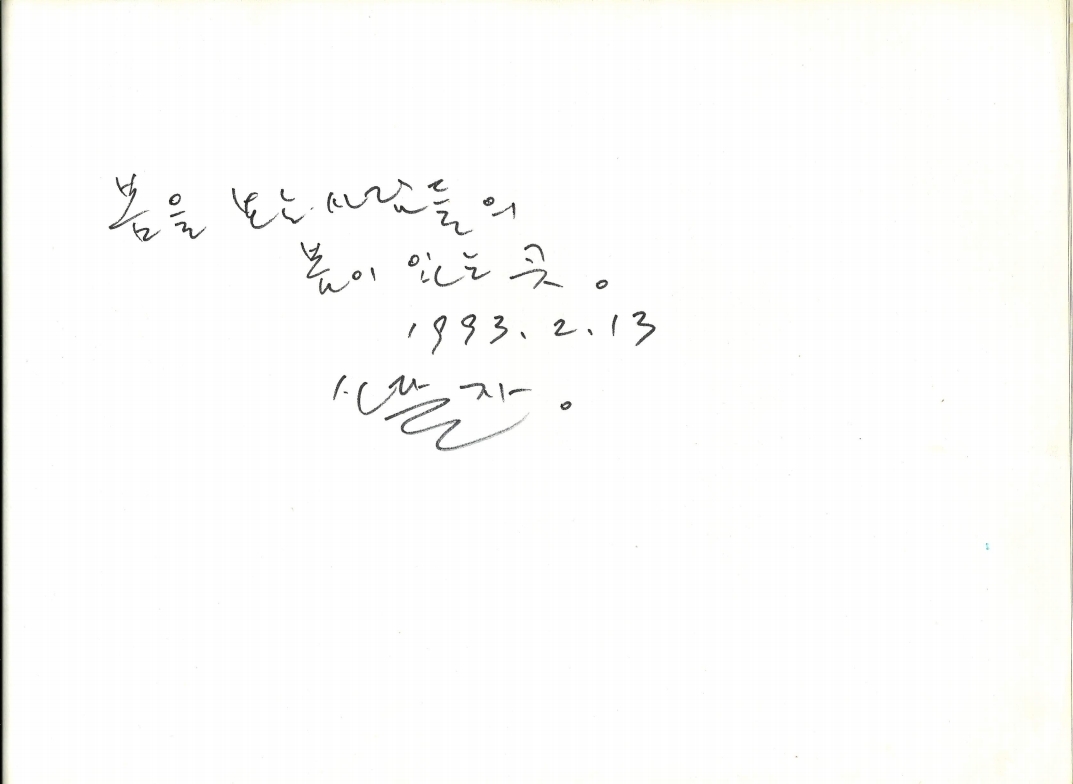 봄을 보는 사람들의
봄이 있는 곳。
1993. 2. 13
신달자。